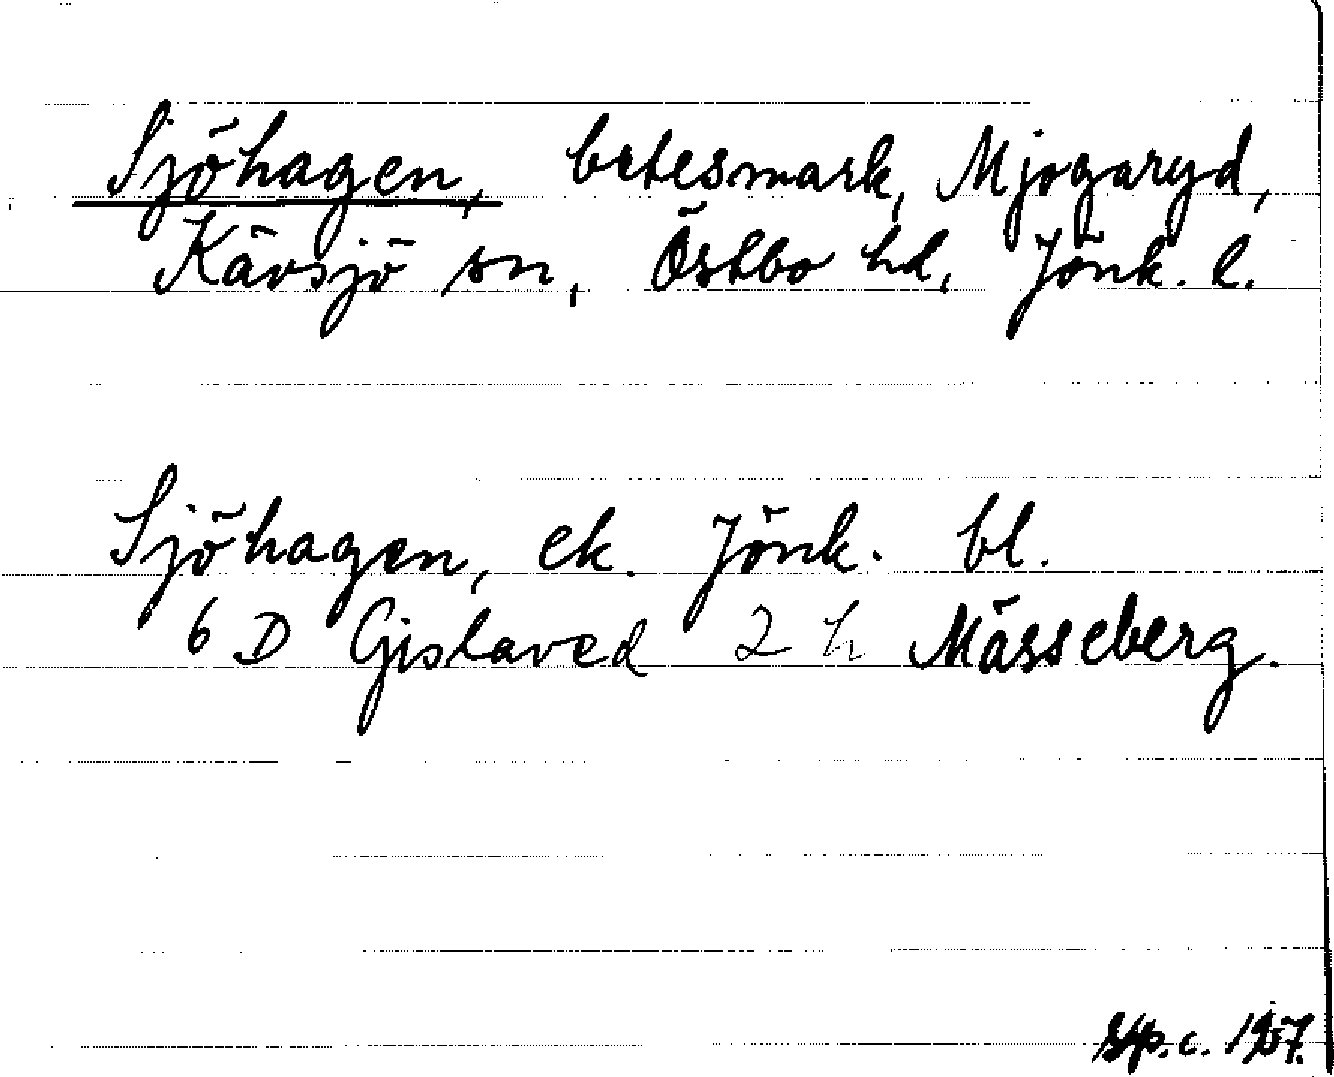 Sjöhagen, betesmark, Mjogaryd,
Kävsjö sn, Östbo hd, Jönk. l.
Sjöhagen, ek. Jönk. bl.
6 D Gislaved 2 h Mässeberg.
c. 1957.